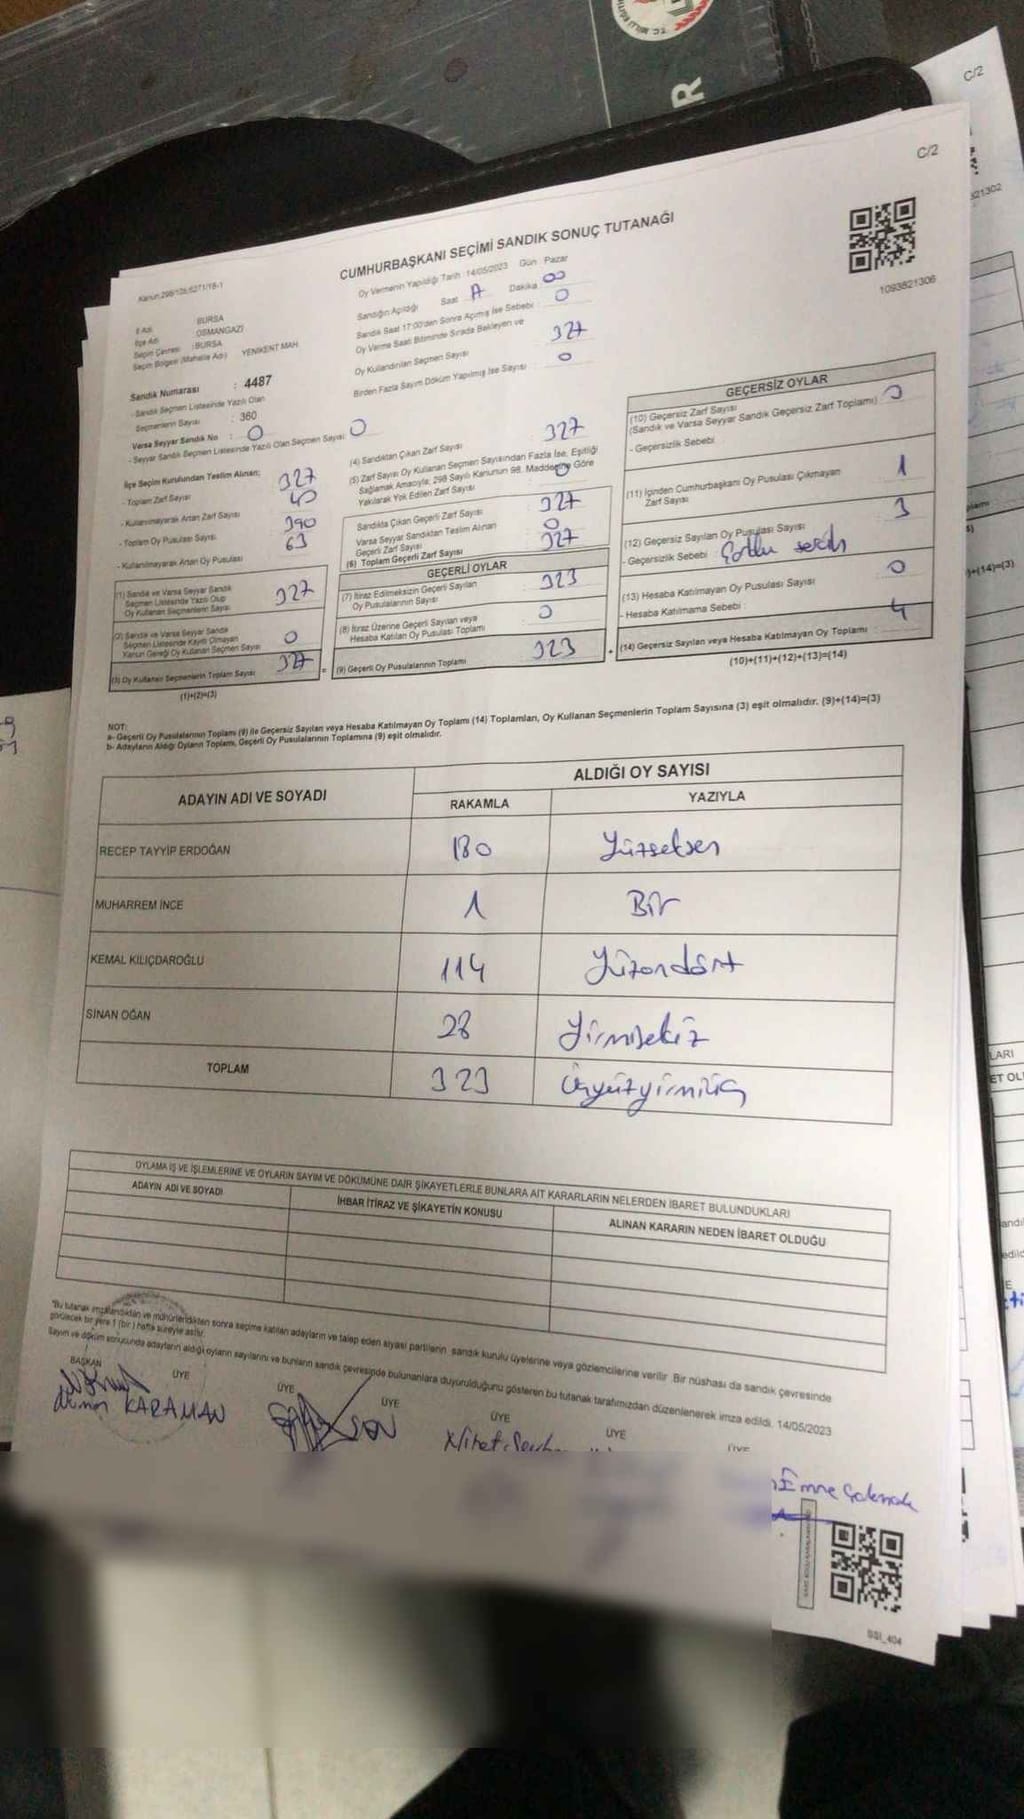 C/2
C/2
R
CUMHURBAŞKANI SEÇİMİ SANDIK SONUÇ TUTANAĞI
1093821306
Oy Vermenin Yapıldığı Tarih 14/05/2023 Gün Pazar
Sandığın Açıldığı Saat Dakika 00
Sandık Saat 17:00'den Sonra Açılmış İse Sebebi : 0
Oy Verme Saati Bitiminde Sırada Bekleyen ve
Oy Kullandırılan Seçmen Sayısı 327
Birden Fazla Sayım Döküm Yapılmış İse Sayısı : 0
İl Adı BURSA
İlçe Adı OSMANGAZİ
Seçim Çevresi : BURSA
Seçim Bölgesi (Mahalle Adı) YENİKENT MAH
Sandık Numarası : 4487
- Sandık Seçmen Listesinde Yazılı Olan
Seçmenlerin Sayısı : 360
Varsa Seyyar Sandık No : 0
- Seyyar Sandık Seçmen Listesinde Yazılı Olan Seçmen Sayısı: 0
İlçe Seçim Kurulundan Teslim Alınan;
- Toplam Zarf Sayısı 327
- Kullanılmayarak Artan Zarf Sayısı
- Toplam Oy Pusulası Sayısı 390
- Kullanılmayarak Artan Oy Pusulası 63
(1) Sandık ve Varsa Seyyar Sandık
Seçmen Listesinde Yazılı Olup
Oy Kullanan Seçmenlerin Sayısı 327
(2) Sandık ve Varsa Seyyar Sandık
Seçmen Listesinde Kayıtlı Olmayan
Kanun Gereği Oy Kullanan Seçmen Sayısı 0
(3) Oy Kullanan Seçmenlerin Toplam Sayısı 327
(1)+(2)=(3)
(4) Sandıktan Çıkan Zarf Sayısı 327
(5) Zarf Sayısı Oy Kullanan Seçmen Sayısından Fazla İse, Eşitliği
Sağlamak Amacıyla; 298 Sayılı Kanunun 98. Maddesine Göre
Yakılarak Yok Edilen Zarf Sayısı 0
Sandıkta Çıkan Geçerli Zarf Sayısı 327
Varsa Seyyar Sandıktan Teslim Alınan
Geçerli Zarf Sayısı 0
(6) Toplam Geçerli Zarf Sayısı 327
GEÇERLİ OYLAR
(7) İtiraz Edilmeksizin Geçerli Sayılan
Oy Pusulalarının Sayısı 323
(8) İtiraz Üzerine Geçerli Sayılan veya
Hesaba Katılan Oy Pusulası Toplamı 0
(9) Geçerli Oy Pusulalarının Toplamı 323
GEÇERSİZ OYLAR
(10) Geçersiz Zarf Sayısı
(Sandık ve Varsa Seyyar Sandık Geçersiz Zarf Toplamı) 0
- Geçersizlik Sebebi
(11) İçinden Cumhurbaşkanı Oy Pusulası Çıkmayan
Zarf Sayısı 1
(12) Geçersiz Sayılan Oy Pusulası Sayısı 3
- Geçersizlik Sebebi
(13) Hesaba Katılmayan Oy Pusulası Sayısı 0
- Hesaba Katılmama Sebebi :
(14) Geçersiz Sayılan veya Hesaba Katılmayan Oy Toplamı 4
(10)+(11)+(12)+(13)=(14)
NOT:
a- Geçerli Oy Pusulalarının Toplamı (9) ile Geçersiz Sayılan veya Hesaba Katılmayan Oy Toplamı (14) Toplamları, Oy Kullanan Seçmenlerin Toplam Sayısına (3) eşit olmalıdır. (9)+(14)=(3)
b- Adayların Aldığı Oyların Toplamı, Geçerli Oy Pusulalarının Toplamına (9) eşit olmalıdır.
ADAYIN ADI VE SOYADI ALDIĞI OY SAYISI
RAKAMLA YAZIYLA
RECEP TAYYİP ERDOĞAN 180 Yüzseksen
MUHARREM İNCE 1 Bir
KEMAL KILIÇDAROĞLU 114 Yüzondört
SİNAN OĞAN 28 Yirmisekiz
TOPLAM 323 Üçyüzyirmiüç
OYLAMA İŞ VE İŞLEMLERİNE VE OYLARIN SAYIM VE DÖKÜMÜNE DAİR ŞİKAYETLERLE BUNLARA AİT KARARLARIN NELERDEN İBARET BULUNDUKLARI
ADAYIN ADI VE SOYADI İHBAR İTİRAZ VE ŞİKAYETİN KONUSU ALINAN KARARIN NEDEN İBARET OLDUĞU
"Bu tutanak imzalandıktan ve mühürlendikten sonra seçime katılan adayların ve talep eden siyasi partilerin sandık kurulu üyelerine veya gözlemcilerine verilir. Bir nüshası da sandık çevresinde
görülecek bir yere 1 (bir) hafta süreyle asılır.
Sayım ve döküm sonucunda adayların aldığı oyların sayılarını ve bunların sandık çevresinde bulunanlara duyurulduğunu gösteren bu tutanak tarafımızdan düzenlenerek imza edildi. 14/05/2023
BAŞKAN ÜYE ÜYE ÜYE ÜYE ÜYE ÜYE
KARAMAN
Emine
SSI_404